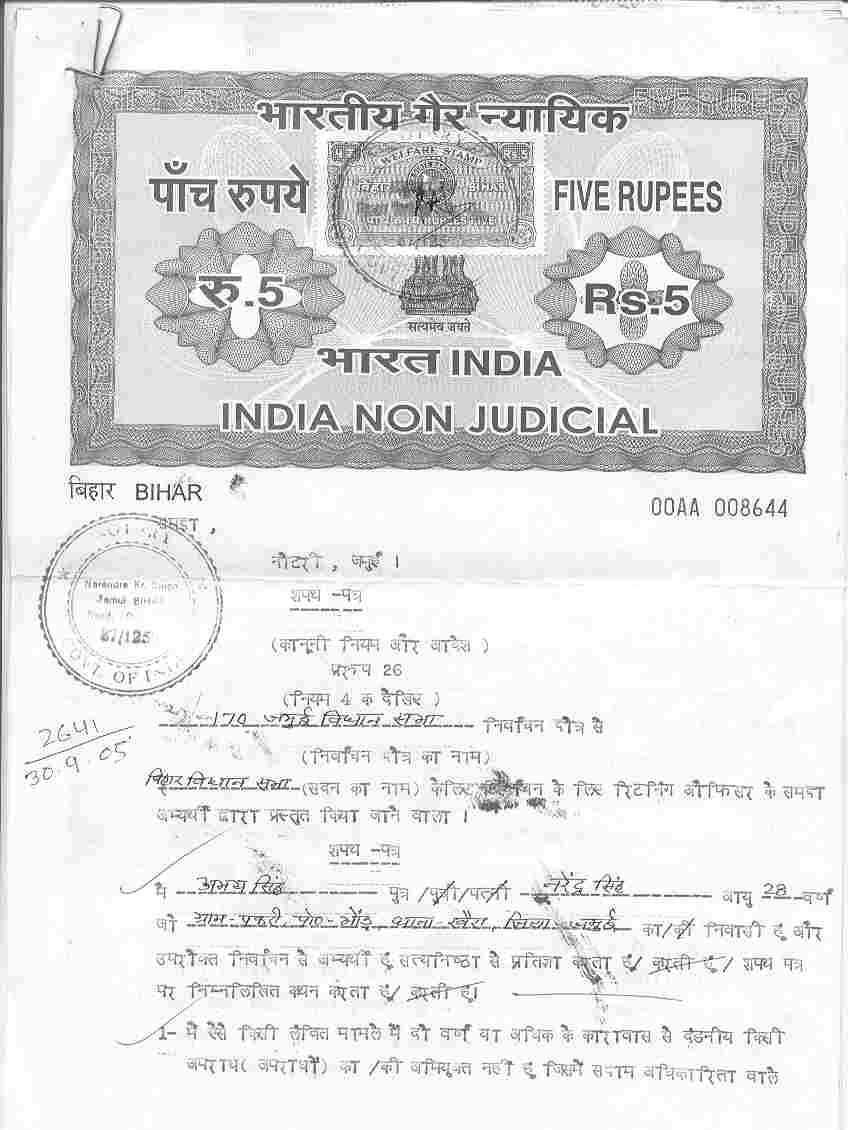 भारतीय गैर न्यायिक
FIVE RUPEES
WELFARE STAMP
बिहार BIHAR
पाँच रुपये
FIVE RUPEES
रु.5
Rs.5
सत्यमेव जयते
भारत INDIA
INDIA NON JUDICIAL
बिहार BIHAR
00AA 008644
नोटरी, जमुई ।
शपथ -पत्र
Jamui BIHAR
GOVT. OF
(कानूनी नियम और आदेश )
प्ररूप 26
(नियम 4 क देखिए )
170 जमुई विधान सभा निर्वाचन क्षेत्र से
2641
30.9.05
(निर्वाचन क्षेत्र का नाम)
बिहार विधान सभा (सदन का नाम) के लिए निर्वाचन के लिए रिटर्निंग ऑफिसर के समक्ष
अभ्यर्थी द्वारा प्रस्तुत किया जाने वाला ।
शपथ -पत्र
मैं अभय सिंह पुत्र /पुत्री/पत्नी नरेंद्र सिंह आयु 28 वर्ष
जो ग्राम- पो०- थाना-खैरा, जिला जमुई का/की निवासी हूं और
उपरोक्त निर्वाचन से अभ्यर्थी हूं सत्यनिष्ठा से प्रतिज्ञा करता हूं/ करती हूं / शपथ पत्र
पर निम्नलिखित कथन करता हूं/ करती हूं।
1- मैं ऐसे किसी लंबित मामले में दो वर्ष या अधिक के कारावास से दंडनीय किसी
अपराध( अपराधों) का /की अभियुक्त नहीं हूं जिसमें सक्षम अधिकारिता वाले